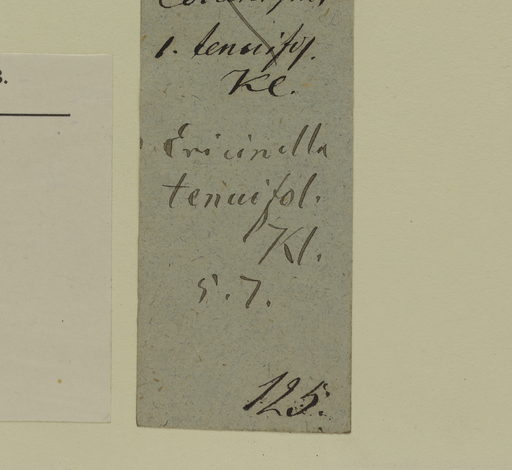 1. tenuifol.
Kl.
Ericinella
tenuifol.
Kl.
5. 7.
125.